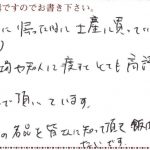 ですのでお書き下さい。
に帰った時に土産に買ってい
や知人に
とても高評
で頂いています。
の名品を皆さんに知って頂き飯田
たいです。